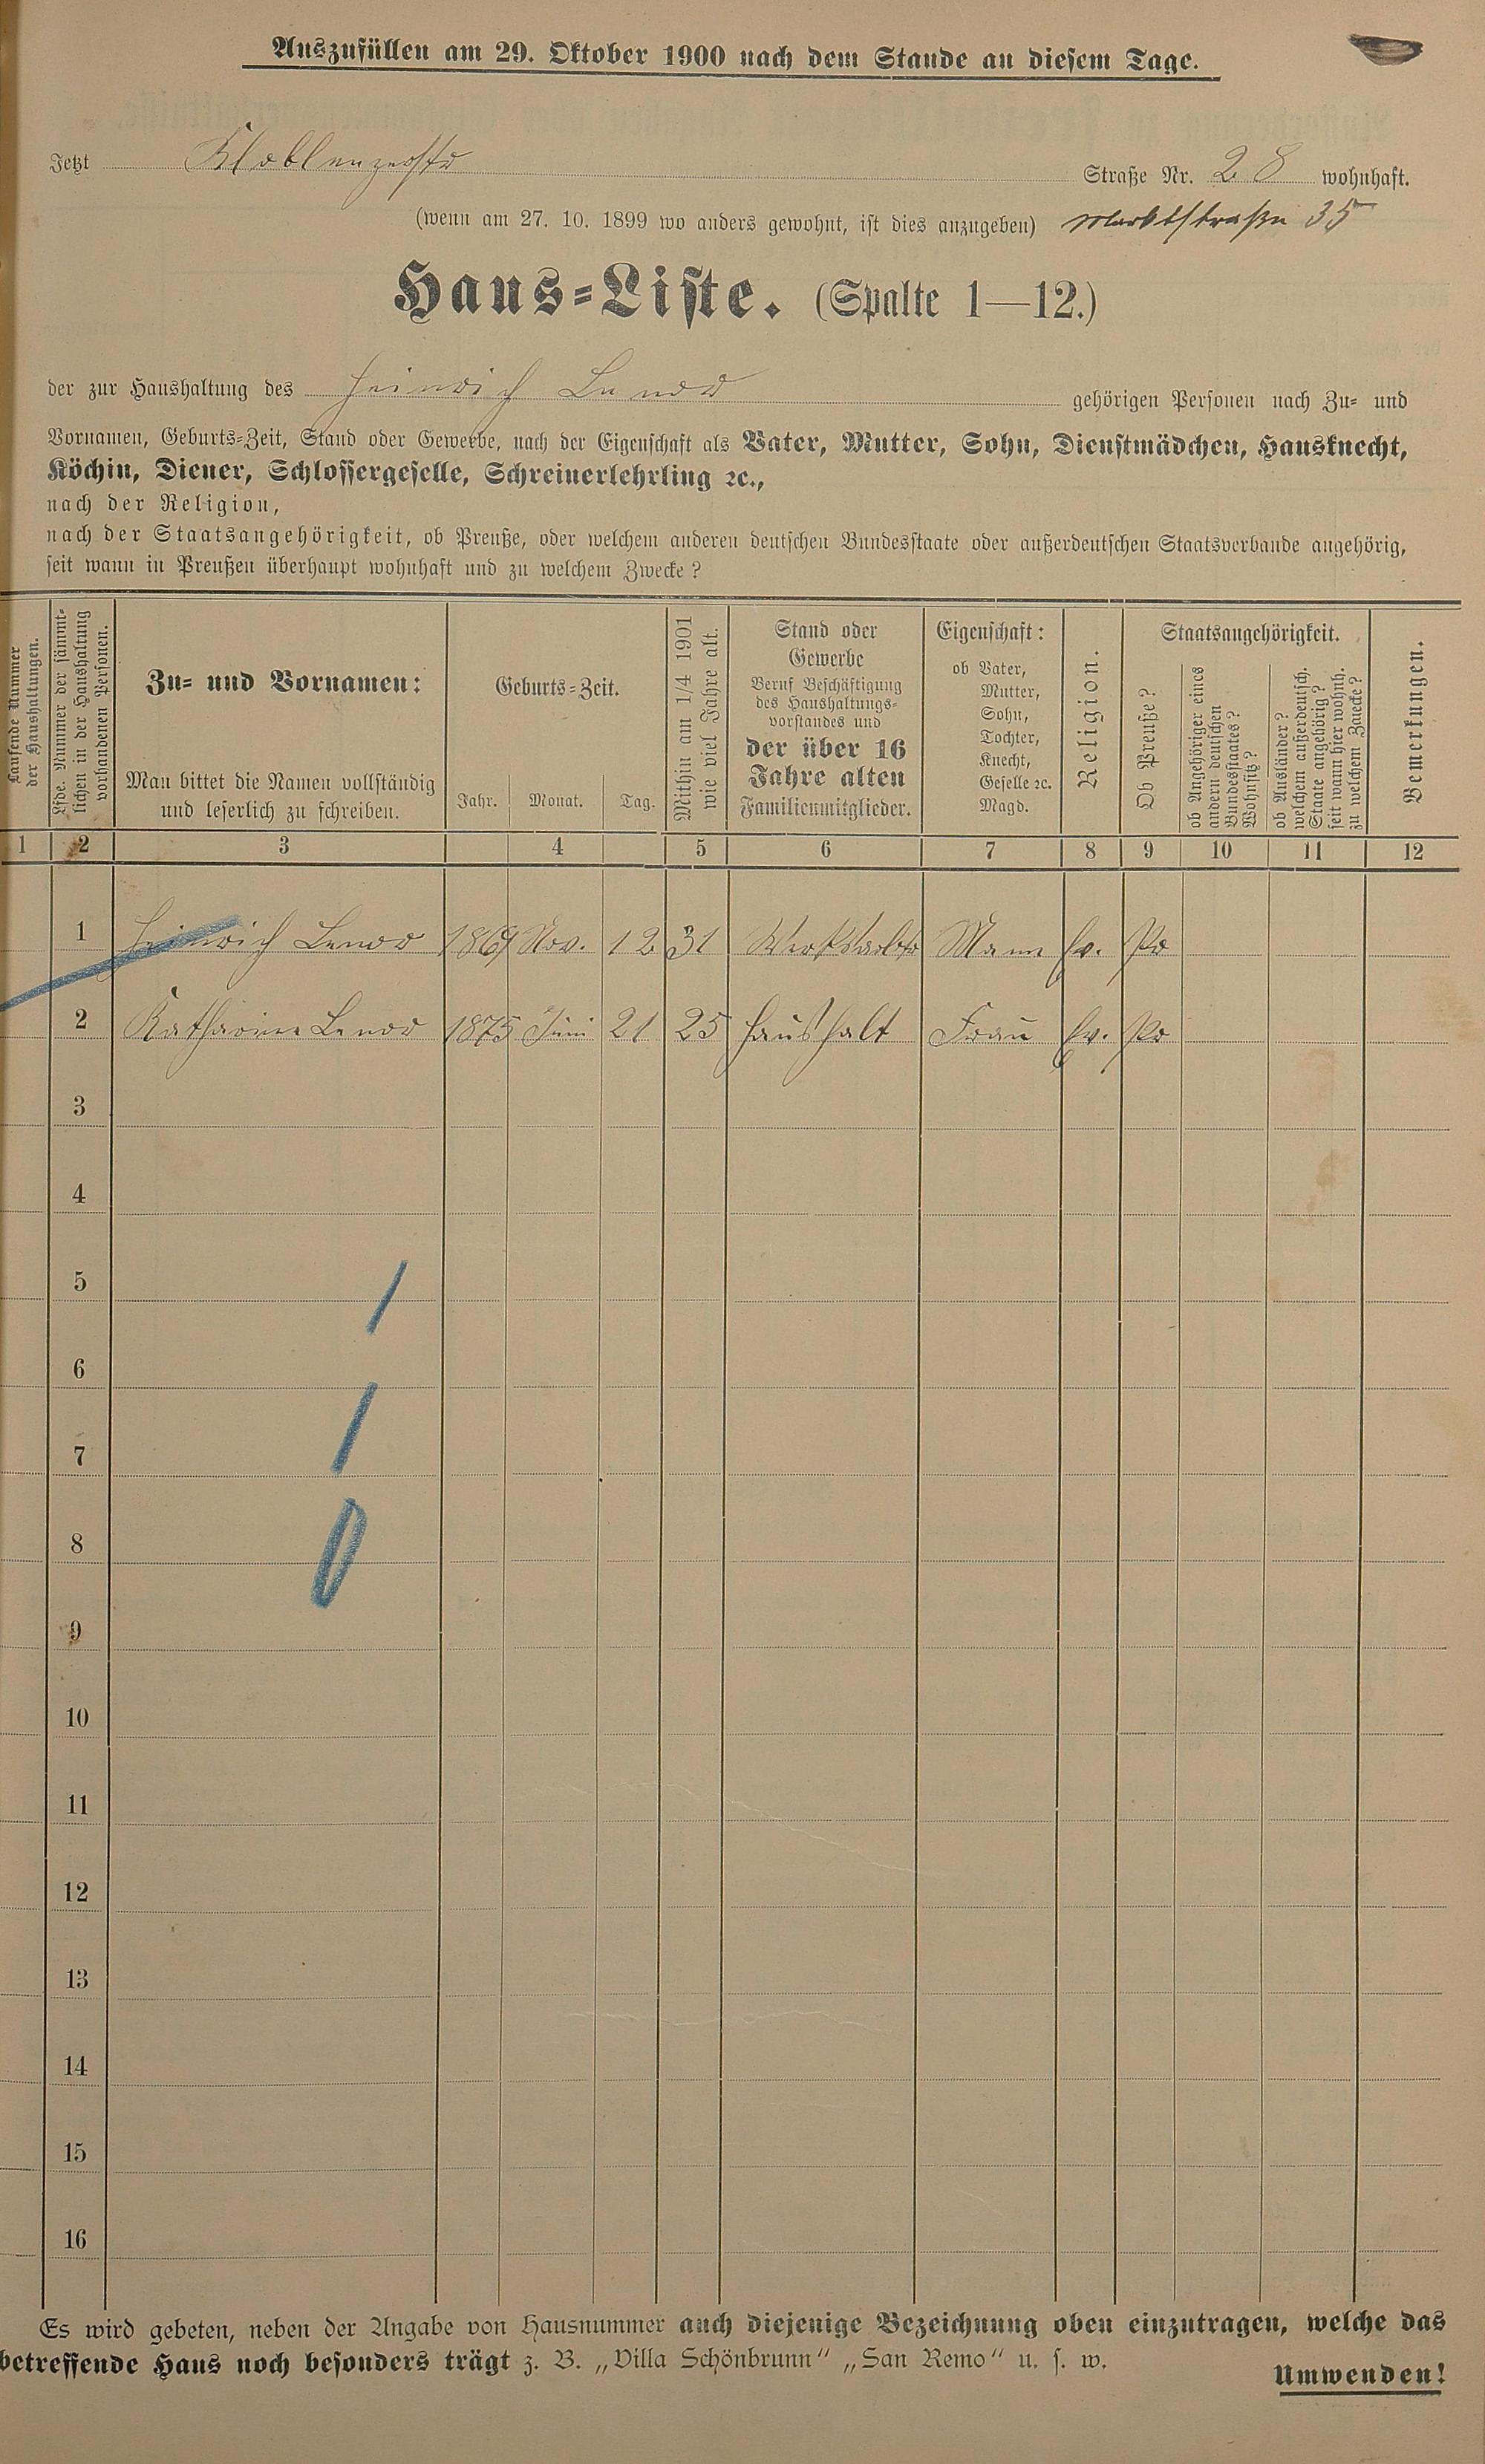 Auszufüllen am 29. Oktober 1900 nach dem Stande an diesem Tage.
Jetzt Koblenzerstr Straße Nr. 28 wohnhaft.
(wenn am 27. 10. 1899 wo anders gewohnt, ist dies anzugeben) Marktstraße 35
Haus-Liste. (Spalte 1—12.)
der zur Haushaltung des Heinrich gehörigen Personen nach Zu- und
Vornamen, Geburts-Zeit, Stand oder Gewerbe, nach der Eigenschaft als Vater, Mutter, Sohn, Dienstmädchen, Hausknecht,
Köchin, Diener, Schlossergeselle, Schreinerlehrling ꝛc.,
nach der Religion,
nach der Staatsangehörigkeit, ob Preuße, oder welchem anderen deutschen Bundesstaate oder außerdeutschen Staatsverbande angehörig,
seit wann in Preußen überhaupt wohnhaft und zu welchem Zwecke?
Laufende Nummer
der Haushaltungen.
Lfde. Nummer der sämmt-
lichen in der Haushaltung
vorhandenen Personen.
Zu- und Vornamen:
Man bittet die Namen vollständig
und leserlich zu schreiben.
Geburts-Zeit.
Jahr. Monat. Tag.
Mithin am 1/4 1901
wie viel Jahre alt.
Stand oder
Gewerbe
Beruf Beschäftigung
des Haushaltungs-
vorstandes und
der über 16
Jahre alten
Familienmitglieder.
Eigenschaft:
ob Vater,
Mutter,
Sohn,
Tochter,
Knecht,
Geselle ꝛc.
Magd.
Religion.
Staatsangehörigkeit.
Ob Preuße?
ob Angehöriger eines
andern deutschen
Bundesstaates?
Wohnsitz?
ob Ausländer?
welchem außerdeutsch.
Staate angehörig?
seit wann hier wohnh.
zu welchem Zwecke?
Bemerkungen.
1 2 3 4 5 6 7 8 9 10 11 12
1 Heinrich 1869 Nov. 12 31 Mann Ev. Pr
2 Katharine 1875 Juni 21 25 Haushalt Frau Ev. Pr
3
4
5
6
7
8
9
10
11
12
13
14
15
16
Es wird gebeten, neben der Angabe von Hausnummer auch diejenige Bezeichnung oben einzutragen, welche das
betreffende Haus noch besonders trägt z. B. „Villa Schönbrunn" „San Remo" u. s. w.
Umwenden!